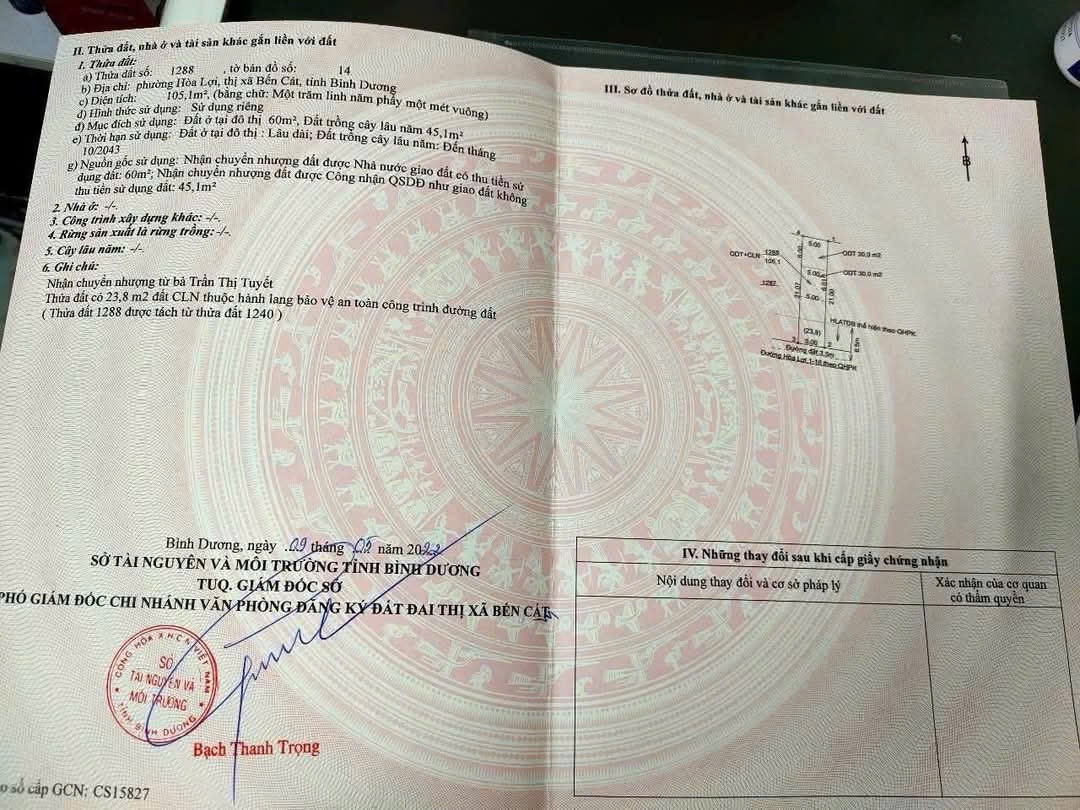 II. Thửa đất, nhà ở và tài sản khác gắn liền với đất
1. Thửa đất:
a) Thửa đất số: 1288 , tờ bản đồ số: 14
b) Địa chỉ: phường Hòa Lợi, thị xã Bến Cát, tỉnh Bình Dương
c) Diện tích: 105,1m², (bằng chữ: Một trăm linh năm phẩy một mét vuông)
d) Hình thức sử dụng: Sử dụng riêng
đ) Mục đích sử dụng: Đất ở tại đô thị 60m², Đất trồng cây lâu năm 45,1m²
e) Thời hạn sử dụng: Đất ở tại đô thị : Lâu dài; Đất trồng cây lâu năm: Đến tháng
10/2043
g) Nguồn gốc sử dụng: Nhận chuyển nhượng đất được Nhà nước giao đất có thu tiền sử
dụng đất: 60m²; Nhận chuyển nhượng đất được Công nhận QSDĐ như giao đất không
thu tiền sử dụng đất: 45,1m²
2. Nhà ở: -/-.
3. Công trình xây dựng khác: -/-.
4. Rừng sản xuất là rừng trồng: -/-.
5. Cây lâu năm: -/-
6. Ghi chú:
Nhận chuyển nhượng từ bà Trần Thị Tuyết
Thửa đất có 23,8 m2 đất CLN thuộc hành lang bảo vệ an toàn công trình đường đất
( Thửa đất 1288 được tách từ thửa đất 1240 )
Bình Dương, ngày 09 tháng 05 năm 2022
SỞ TÀI NGUYÊN VÀ MÔI TRƯỜNG TỈNH BÌNH DƯƠNG
TUQ. GIÁM ĐỐC SỞ
PHÓ GIÁM ĐỐC CHI NHÁNH VĂN PHÒNG ĐĂNG KÝ ĐẤT ĐAI THỊ XÃ BẾN CÁT
CỘNG HÒA X.H.C.N VIỆT NAM
SỞ
TÀI NGUYÊN VÀ
MÔI TRƯỜNG
TỈNH BÌNH DƯƠNG
Bạch Thanh Trọng
o sổ cấp GCN: CS15827
III. Sơ đồ thửa đất, nhà ở và tài sản khác gắn liền với đất
B
4 1
5.00
6.00
ODT 30,0 m2
ODT+CLN 1288
105,1
5.00
ODT 30,0 m2
6.01
1287
21.07
5.00
21.00
HLATĐB thể hiện theo QHPK
(23,8)
8.5m
3 5.00 2
Đường đất 3,5m
Đường Hòa Lợi 1-18 theo QHPK
IV. Những thay đổi sau khi cấp giấy chứng nhận
Nội dung thay đổi và cơ sở pháp lý
Xác nhận của cơ quan
có thẩm quyền